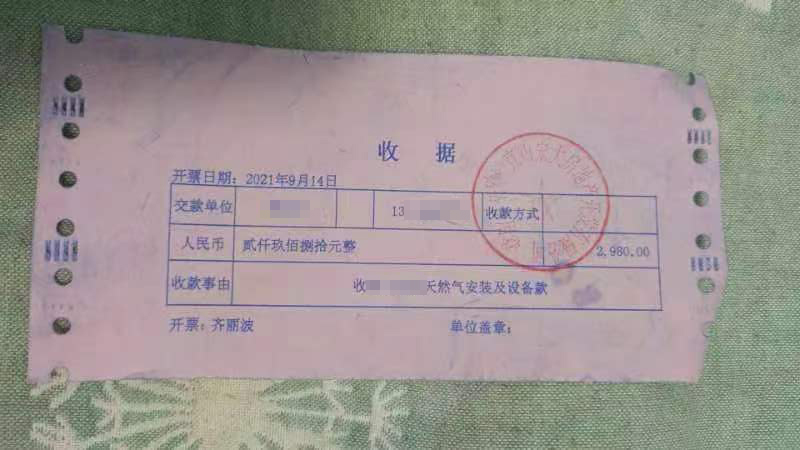 收 据
开票日期：2021年9月14日
交款单位 13 收款方式
人民币 贰仟玖佰捌拾元整 2,980.00
收款事由 收 天然气安装及设备款
开票：齐丽波 单位盖章：